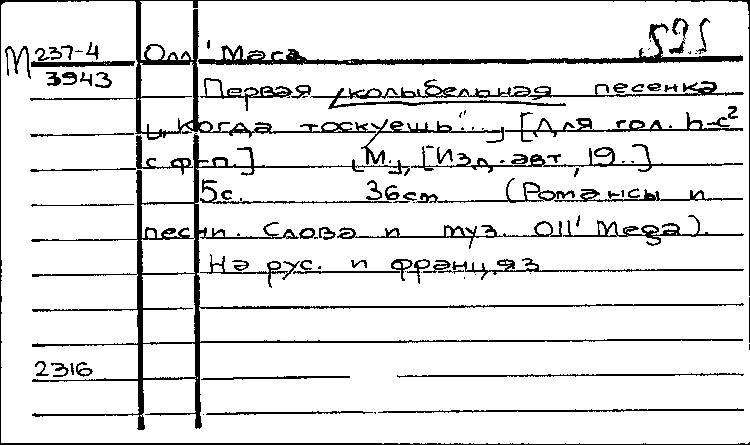 М 237-4 Олл' Мега 595
3943 Первая колыбельная песенка
„Когда тоскуешь..." [Для гол. h-c²
с ф-п.]. [М.], [Изд. авт., 19..].
5с. 36cm (Романсы и
песни. Слова и муз. Oll' Mega).
На рус. и франц. яз
2316